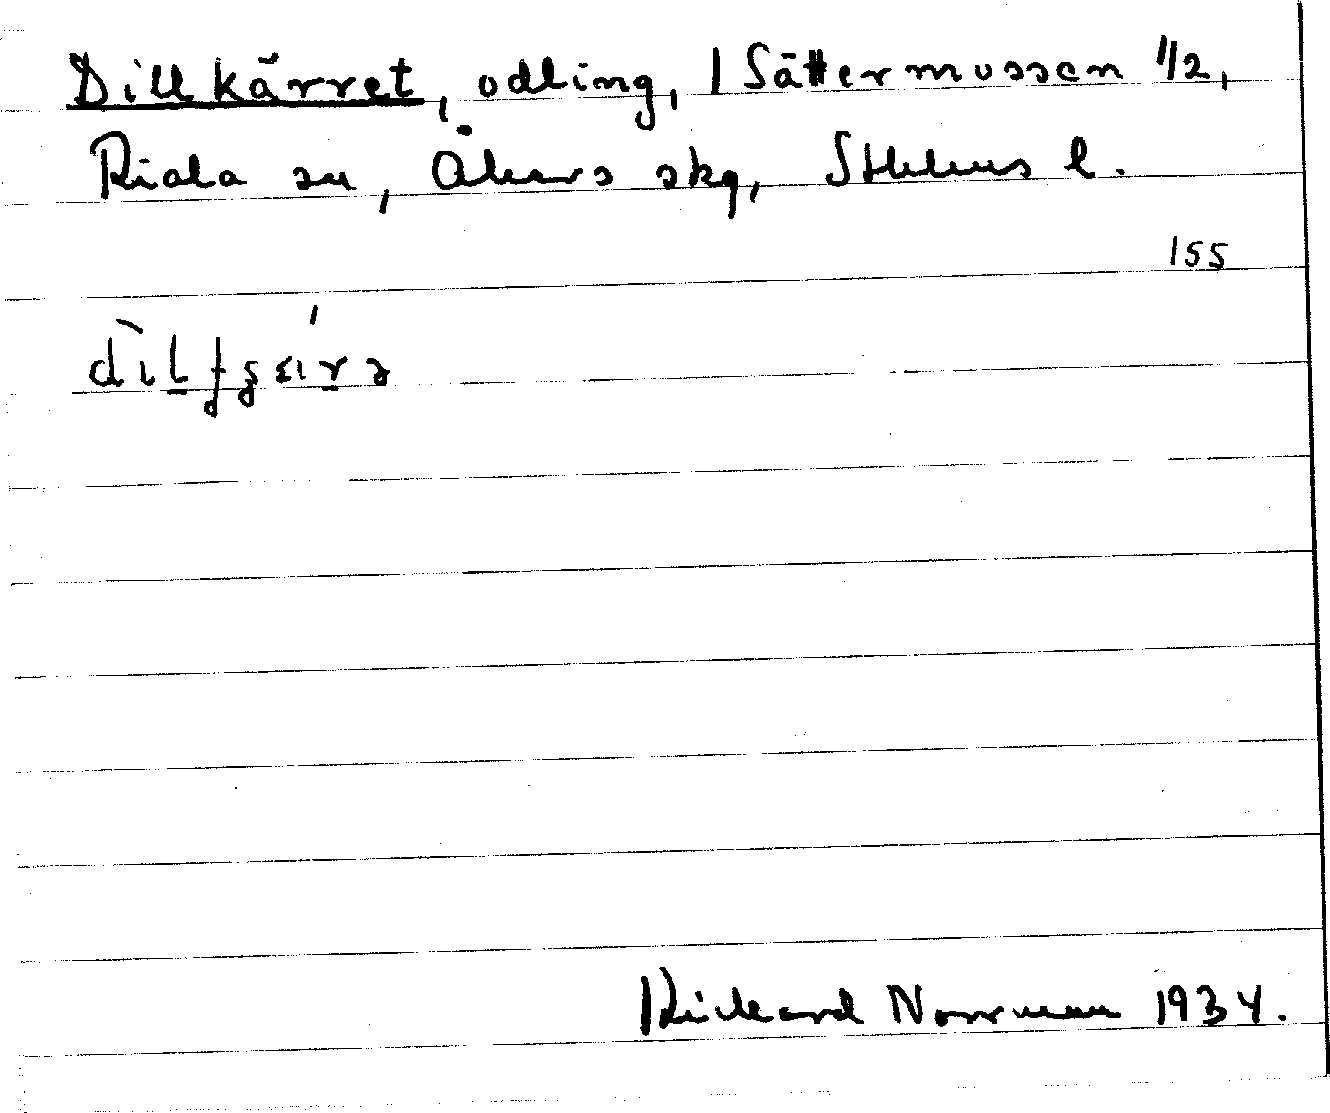 Dillkärret, odling, 1 Sättermossen 1/2,
Riala sn, Åkers skg, Sthlms l.
155
Rickard Norrman 1934.